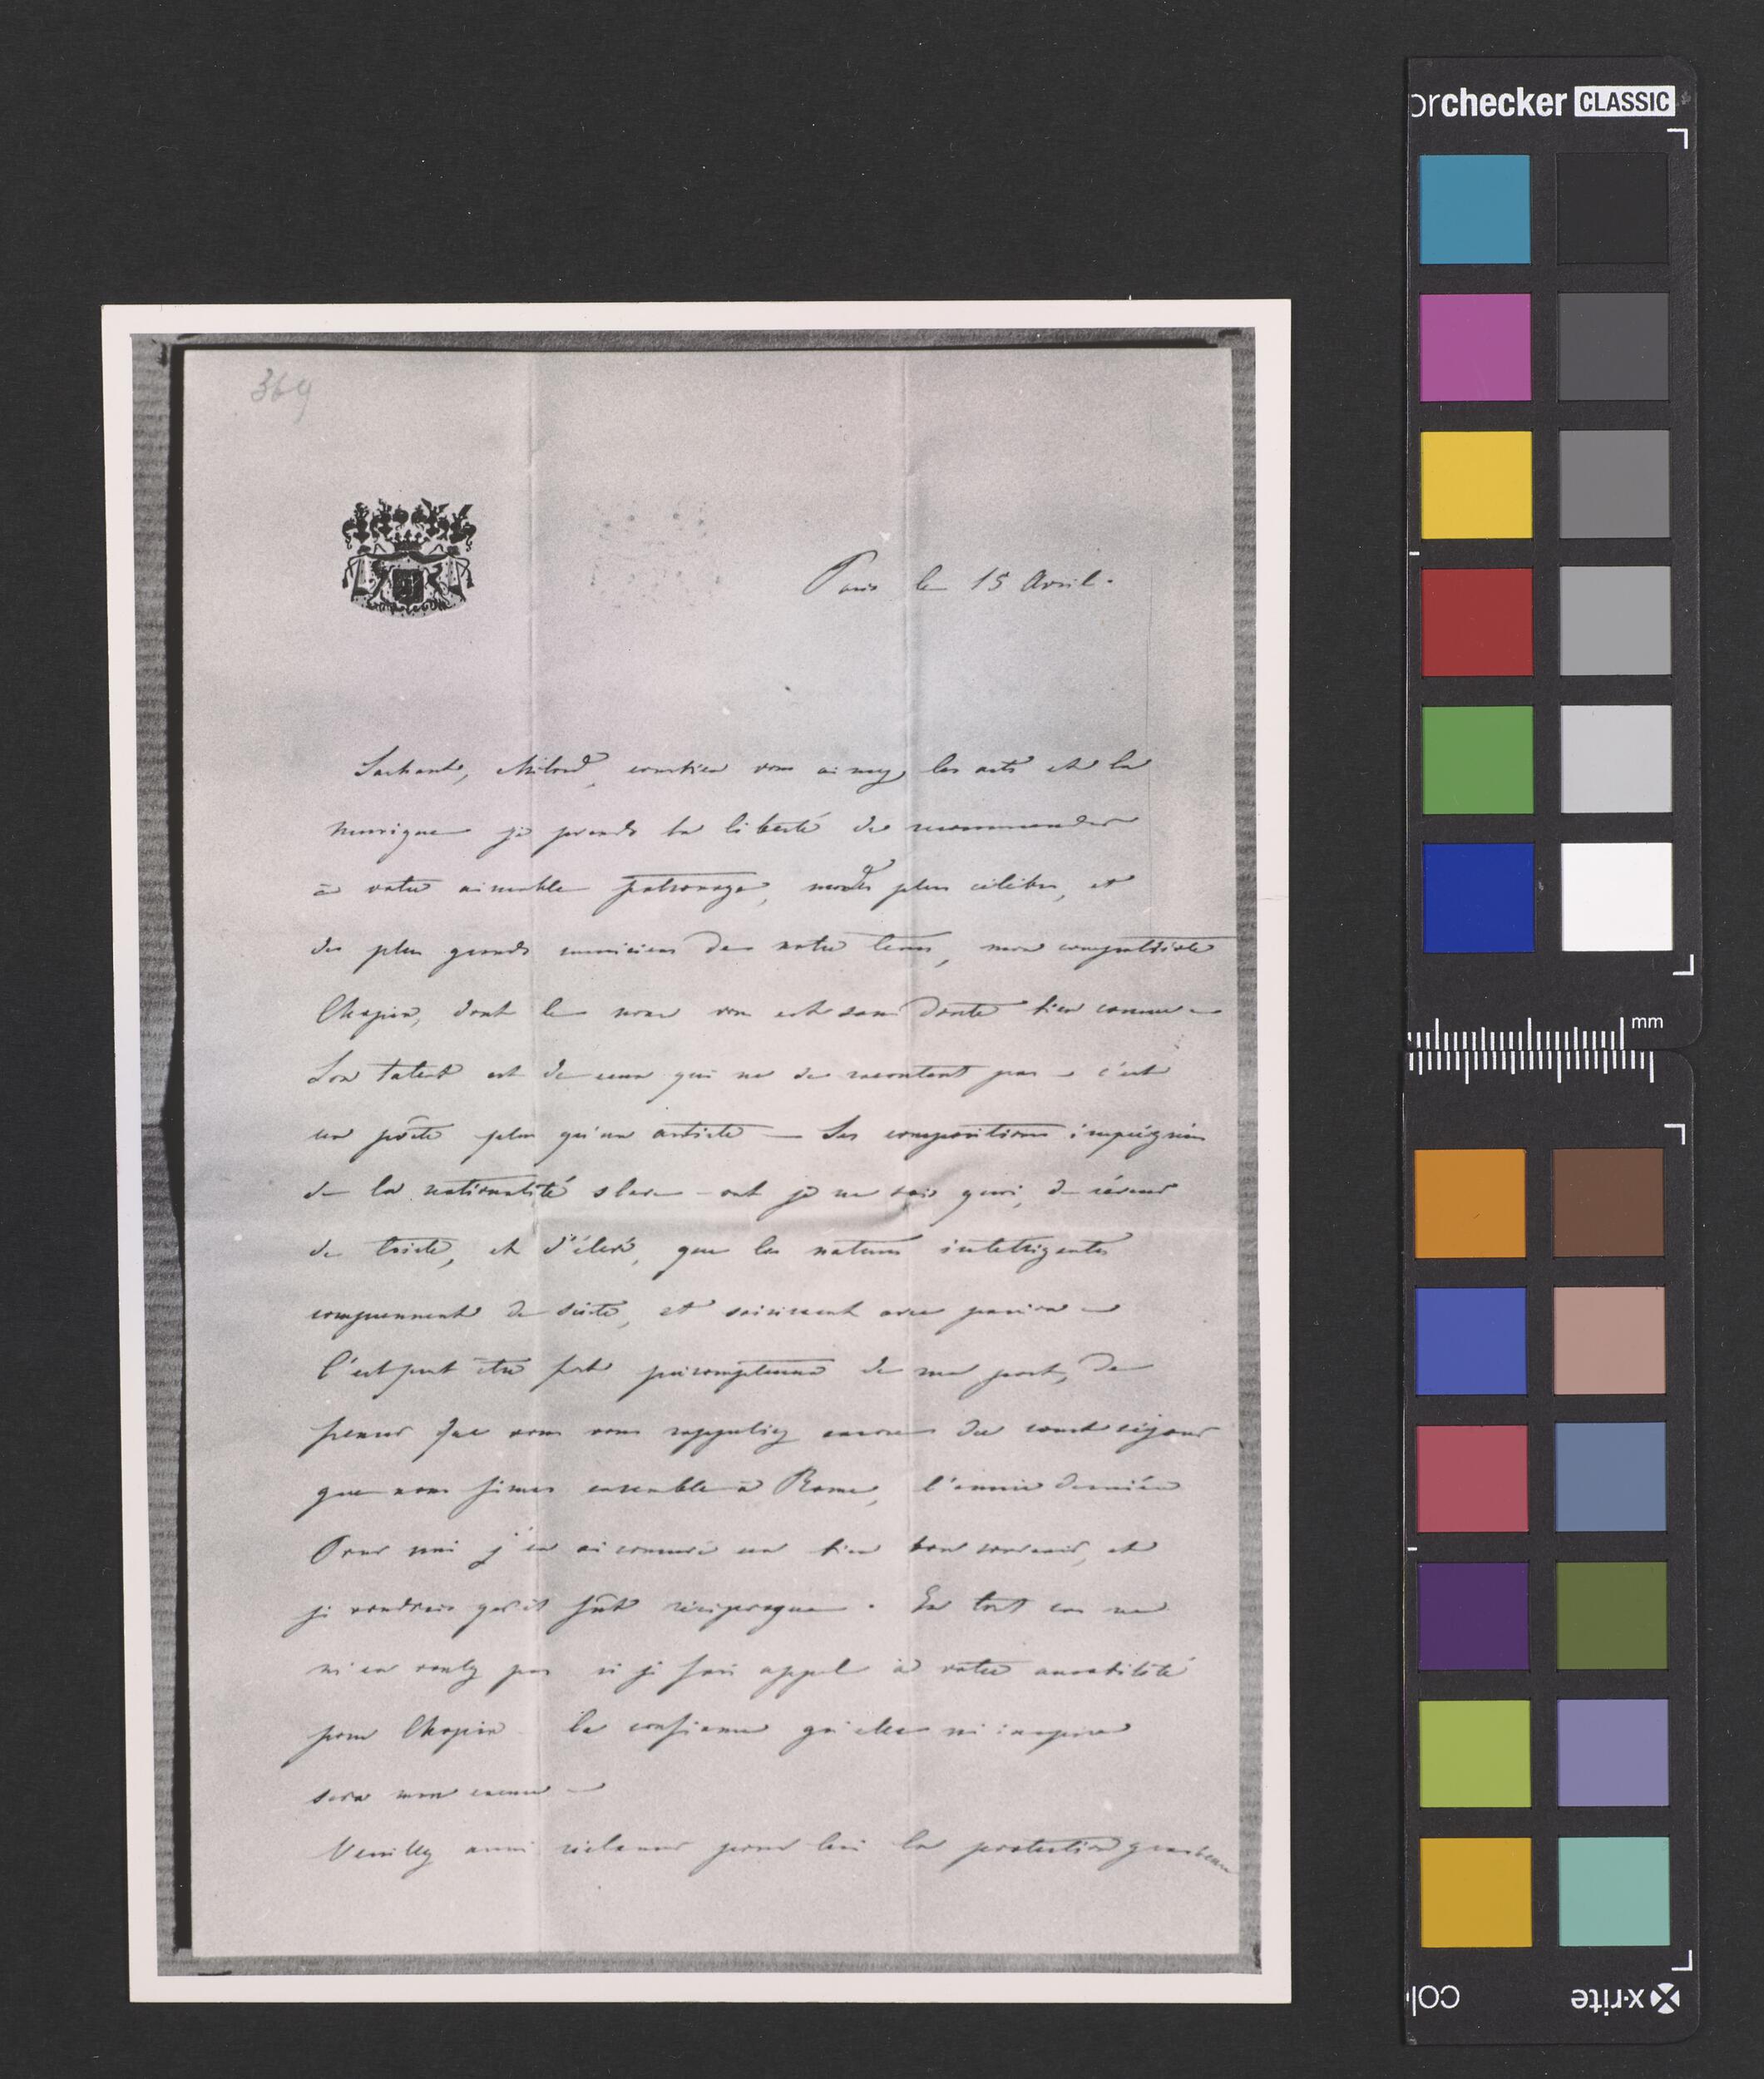 364
Paris le 15 Avril.
Sachant, Milord, combien vous aimez les arts et la
musique je prends la liberté de recommander
à votre aimable patronage, un des plus célèbres, et
des plus grands musiciens de notre tems, mon compatriote
Chopin, dont le nom vous est sans doute bien connu —
Son talent est de ceux qui ne se racontent pas — c'est
un poëte plus qu'un artiste — Ses compositions imprégnées
de la nationalité slave — ont je ne sais quoi, de rêveur
de triste, et d'élevé, que les natures intelligentes
comprennent de suite, et saisissent avec passion —
C'est peut être fort présomptueux de ma part, de
penser que vous vous rappeliez encore du court séjour
que nous fimes ensemble à Rome, l'année dernière
Pour moi j'en ai conservé un bien bon souvenir, et
je voudrais qu'il fût réciproque. En tout cas ne
m'en voulez pas si je fais appel à votre amabilité
pour Chopin la confiance qu'elle m'inspire
sera mon excuse —
Veuillez aussi réclamer pour lui la protection
orchecker CLASSIC
mm
x-rite
col